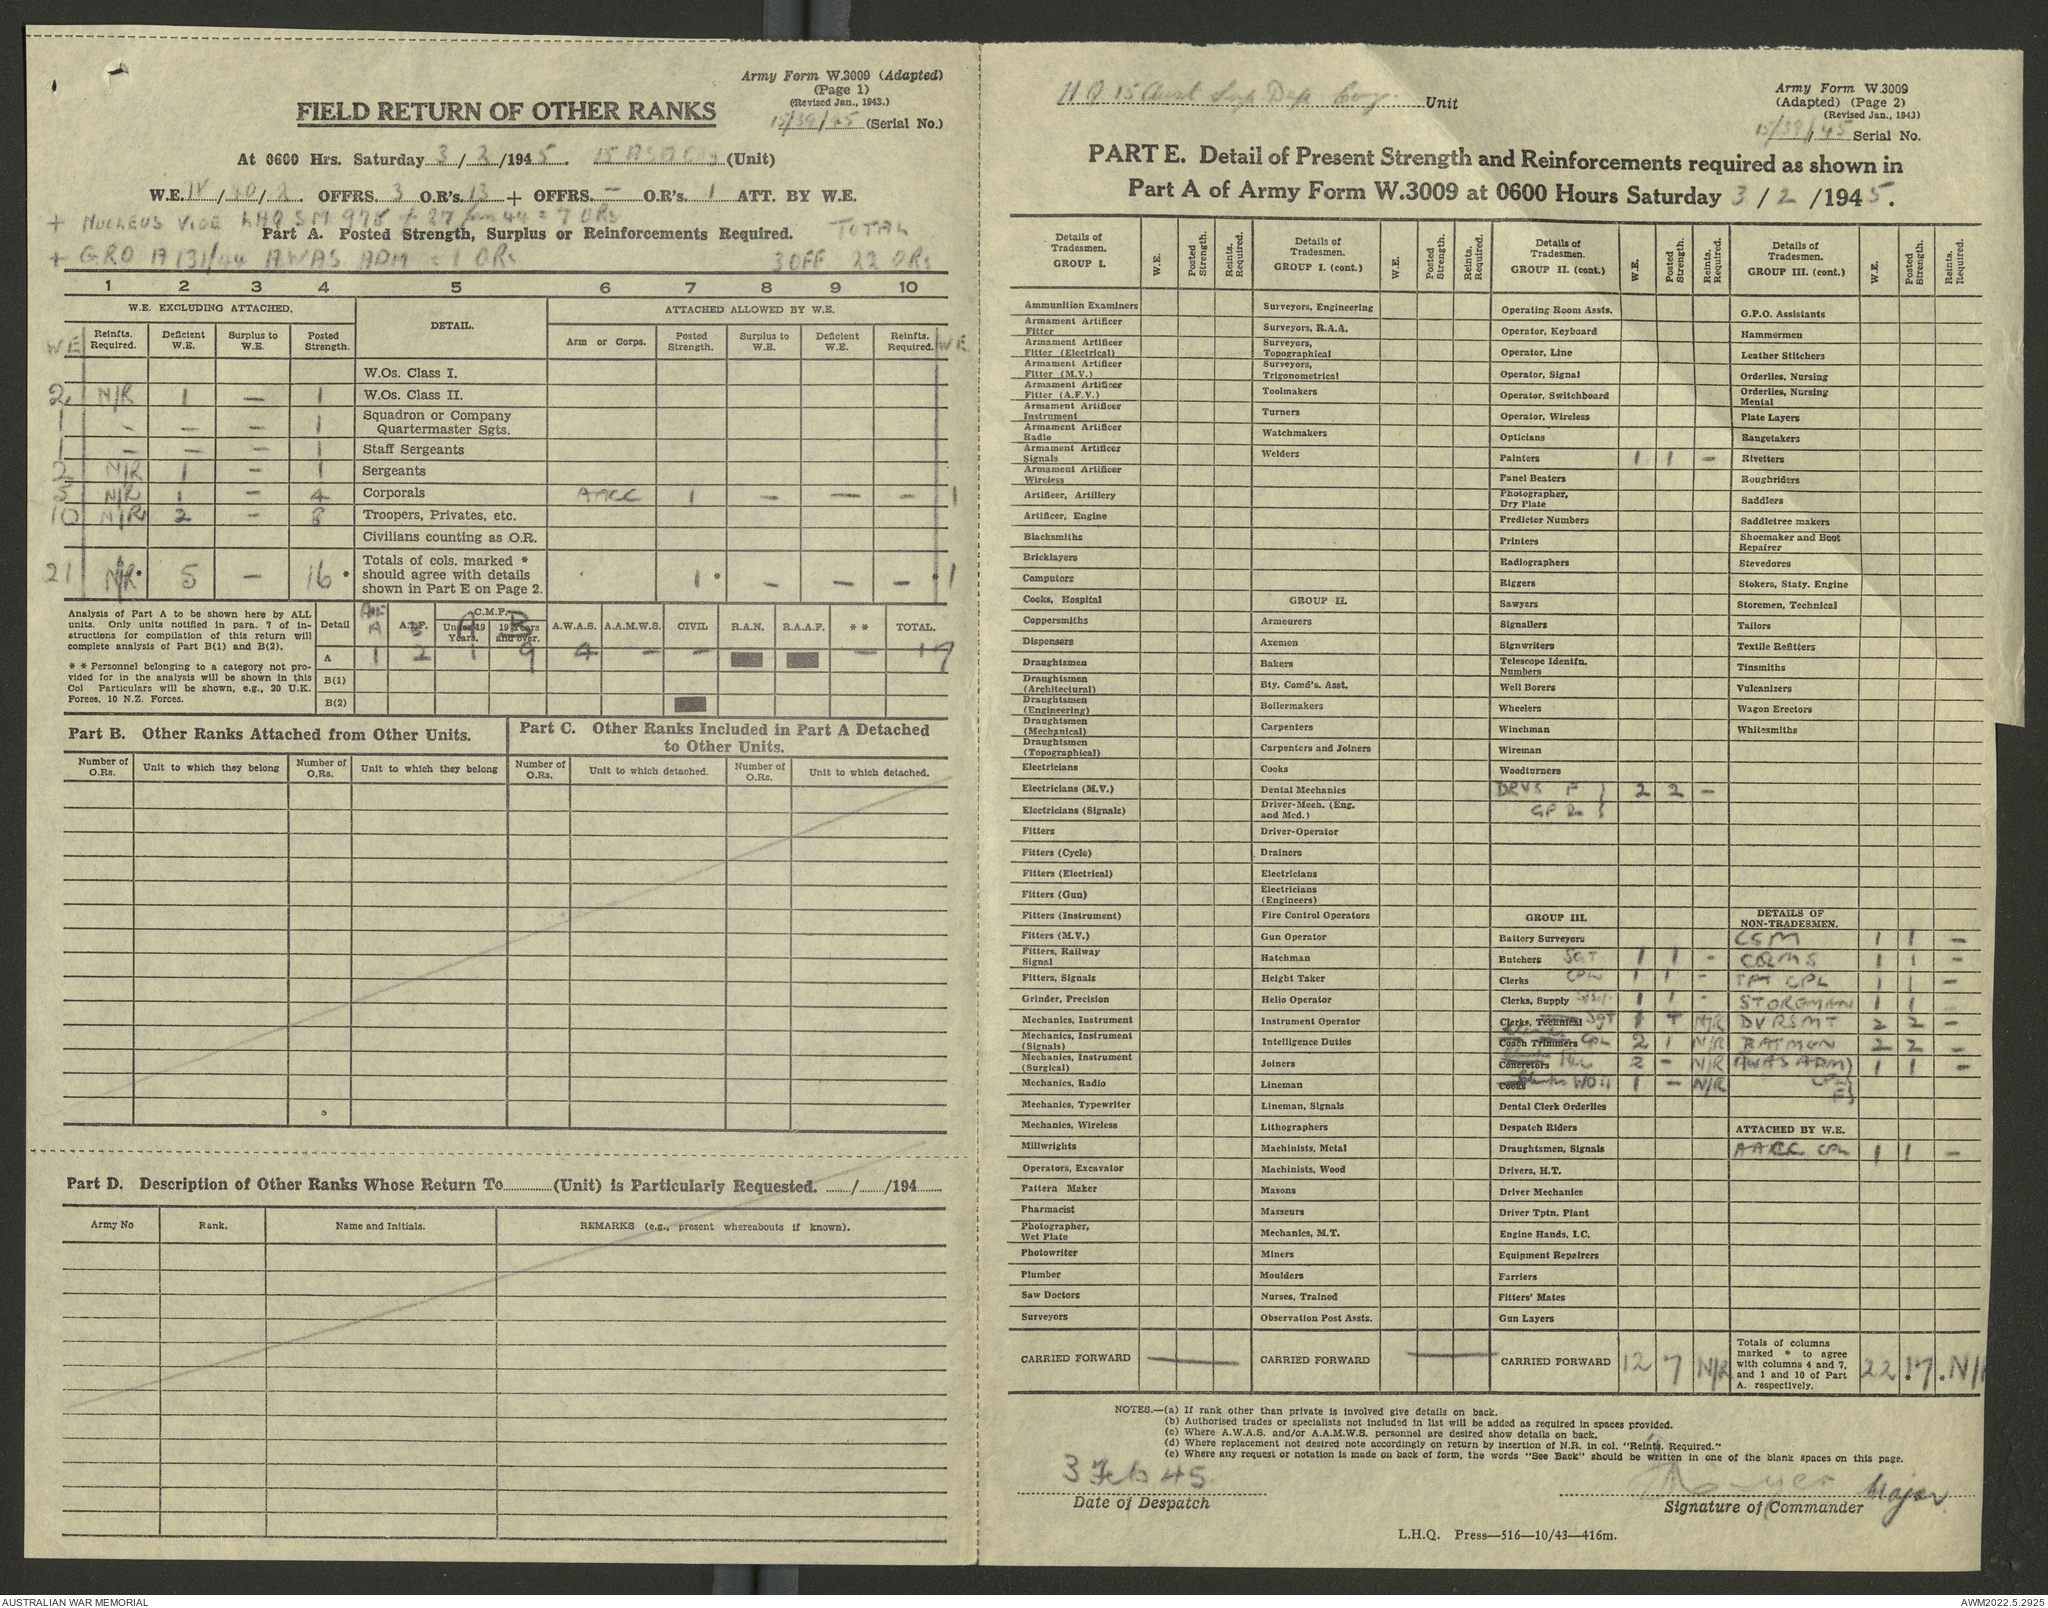 Army Form W.3009 (Adapted)
(Page 1)
(Revised Jan., 1943.)
FIELD RETURN OF OTHER RANKS
15/39/45 (Serial No.)
At 0600 Hrs. Saturday 3/2/1945. (Unit)
W.E. IV/40/2. OFFRS. 3 O.R's. 13 + OFFRS. — O.R's. 1 ATT. BY W.E.
+ NUCLEUS VIDE LHQ SM 978 = 7 ORs
Part A. Posted Strength, Surplus or Reinforcements Required. TOTAL
+ GRO A131/44 AWAS ADM = 1 ORs 3 OFF 22 ORs
1 2 3 4 5 6 7 8 9 10
W.E. EXCLUDING ATTACHED. DETAIL. ATTACHED ALLOWED BY W.E.
WE Reinfts. Required. Deficient W.E. Surplus to W.E. Posted Strength. Arm or Corps. Posted Strength. Surplus to W.E. Deficient W.E. Reinfts. Required. WE
W.Os. Class I.
2 N/R 1 — 1 W.Os. Class II.
1 - — — 1 Squadron or Company Quartermaster Sgts.
1 — — — 1 Staff Sergeants
2 N/R 1 — 1 Sergeants
5 N/R 1 — 4 Corporals 1 — — — 1
10 N/R 2 — 8 Troopers, Privates, etc.
Civilians counting as O.R.
21 N/R * 5 — 16 * Totals of cols. marked * should agree with details shown in Part E on Page 2. 1 * — — — * 1
Analysis of Part A to be shown here by ALL units. Only units notified in para. 7 of instructions for compilation of this return will complete analysis of Part B(1) and B(2).
* * Personnel belonging to a category not provided for in the analysis will be shown in this Col Particulars will be shown, e.g., 20 U.K. Forces, 10 N.Z. Forces.
Detail A A.I.F. B C.M.F. Under 19 Years. A 19 Years and over. B A.W.A.S. A.A.M.W.S. CIVIL R.A.N. R.A.A.F. * * TOTAL.
A 1 2 1 9 4 — — — 17
B(1)
B(2)
Part B. Other Ranks Attached from Other Units.
Part C. Other Ranks Included in Part A Detached to Other Units.
Number of O.Rs. Unit to which they belong Number of O.Rs. Unit to which they belong Number of O.Rs. Unit to which detached. Number of O.Rs. Unit to which detached.
Part D. Description of Other Ranks Whose Return To (Unit) is Particularly Requested. / /194
Army No Rank. Name and Initials. REMARKS (e.g., present whereabouts if known).
HQ 15 Aust Sup Dep Coy. Unit
Army Form W.3009
(Adapted) (Page 2)
(Revised Jan., 1943)
15/39/45 Serial No.
PART E. Detail of Present Strength and Reinforcements required as shown in
Part A of Army Form W.3009 at 0600 Hours Saturday 3/2/1945.
Details of Tradesmen. GROUP I. W.E. Posted Strength. Reints. Required.
Ammunition Examiners
Armament Artificer Fitter
Armament Artificer Fitter (Electrical)
Armament Artificer Fitter (M.V.)
Armament Artificer Fitter (A.F.V.)
Armament Artificer Instrument
Armament Artificer Radio
Armament Artificer Signals
Armament Artificer Wireless
Artificer, Artillery
Artificer, Engine
Blacksmiths
Bricklayers
Computors
Cooks, Hospital
Coppersmiths
Dispensers
Draughtsmen
Draughtsmen (Architectural)
Draughtsmen (Engineering)
Draughtsmen (Mechanical)
Draughtsmen (Topographical)
Electricians
Electricians (M.V.)
Electricians (Signals)
Fitters
Fitters (Cycle)
Fitters (Electrical)
Fitters (Gun)
Fitters (Instrument)
Fitters (M.V.)
Fitters, Railway Signal
Fitters, Signals
Grinder, Precision
Mechanics, Instrument
Mechanics, Instrument (Signals)
Mechanics, Instrument (Surgical)
Mechanics, Radio
Mechanics, Typewriter
Mechanics, Wireless
Millwrights
Operators, Excavator
Pattern Maker
Pharmacist
Photographer, Wet Plate
Photowriter
Plumber
Saw Doctors
Surveyors
CARRIED FORWARD —
Details of Tradesmen. GROUP I. (cont.) W.E. Posted Strength. Reints. Required.
Surveyors, Engineering
Surveyors, R.A.A.
Surveyors, Topographical
Surveyors, Trigonometrical
Toolmakers
Turners
Watchmakers
Welders
GROUP II.
Armourers
Axemen
Bakers
Bty. Comd's. Asst.
Boilermakers
Carpenters
Carpenters and Joiners
Cooks
Dental Mechanics
Driver-Mech. (Eng. and Med.)
Driver-Operator
Drainers
Electricians
Electricians (Engineers)
Fire Control Operators
Gun Operator
Hatchman
Height Taker
Helio Operator
Instrument Operator
Intelligence Duties
Joiners
Lineman
Lineman, Signals
Lithographers
Machinists, Metal
Machinists, Wood
Masons
Masseurs
Mechanics, M.T.
Miners
Moulders
Nurses, Trained
Observation Post Assts.
CARRIED FORWARD —
Details of Tradesmen. GROUP II. (cont.) W.E. Posted Strength. Reints. Required.
Operating Room Assts.
Operator, Keyboard
Operator, Line
Operator, Signal
Operator, Switchboard
Operator, Wireless
Opticians
Painters 1 1 —
Panel Beaters
Photographer, Dry Plate
Predictor Numbers
Printers
Radiographers
Riggers
Sawyers
Signallers
Signwriters
Telescope Identfn. Numbers
Well Borers
Wheelers
Winchman
Wireman
Woodturners
DRVS F } 2 2 —
GP 2 }
GROUP III.
Battery Surveyors
Butchers SGT 1 1 -
Clerks CPL 1 1 —
Clerks, Supply 1 1 -
Clerks, Technical Sgt 1 + N/R
Coach Trimmers CPL 2 1 N/R
Concretors 2 — N/R
Cooks WOii 1 — N/R
Dental Clerk Orderlies
Despatch Riders
Draughtsmen, Signals
Drivers, H.T.
Driver Mechanics
Driver Tptn. Plant
Engine Hands, I.C.
Equipment Repairers
Farriers
Fitters' Mates
Gun Layers
CARRIED FORWARD 12 7 N/R
Details of Tradesmen. GROUP III. (cont.) W.E. Posted Strength. Reints. Required.
G.P.O. Assistants
Hammermen
Leather Stitchers
Orderlies, Nursing
Orderlies, Nursing Mental
Plate Layers
Rangetakers
Rivetters
Roughriders
Saddlers
Saddletree makers
Shoemaker and Boot Repairer
Stevedores
Stokers, Staty. Engine
Storemen, Technical
Tailors
Textile Refitters
Tinsmiths
Vulcanizers
Wagon Erectors
Whitesmiths
DETAILS OF NON-TRADESMEN.
CSM 1 1 —
CQMS 1 1 —
TPT CPL 1 1 —
STOREMAN 1 1
DVRS MT 2 2 —
BATMEN 2 2 —
(AWAS ADM) 1 1 —
ATTACHED BY W.E.
CPL 1 1 —
Totals of columns marked * to agree with columns 4 and 7, and 1 and 10 of Part A. respectively. 22 * 17 * N/R
NOTES.—(a) If rank other than private is involved give details on back.
(b) Authorised trades or specialists not included in list will be added as required in spaces provided.
(c) Where A.W.A.S. and/or A.A.M.W.S. personnel are desired show details on back.
(d) Where replacement not desired note accordingly on return by insertion of N.R. in col. "Reints. Required."
(e) Where any request or notation is made on back of form, the words "See Back" should be written in one of the blank spaces on this page.
3 Feb 45
Date of Despatch
Major
Signature of Commander
L.H.Q. Press—516—10/43—416m.
AUSTRALIAN WAR MEMORIAL
AWM2022.5.2925